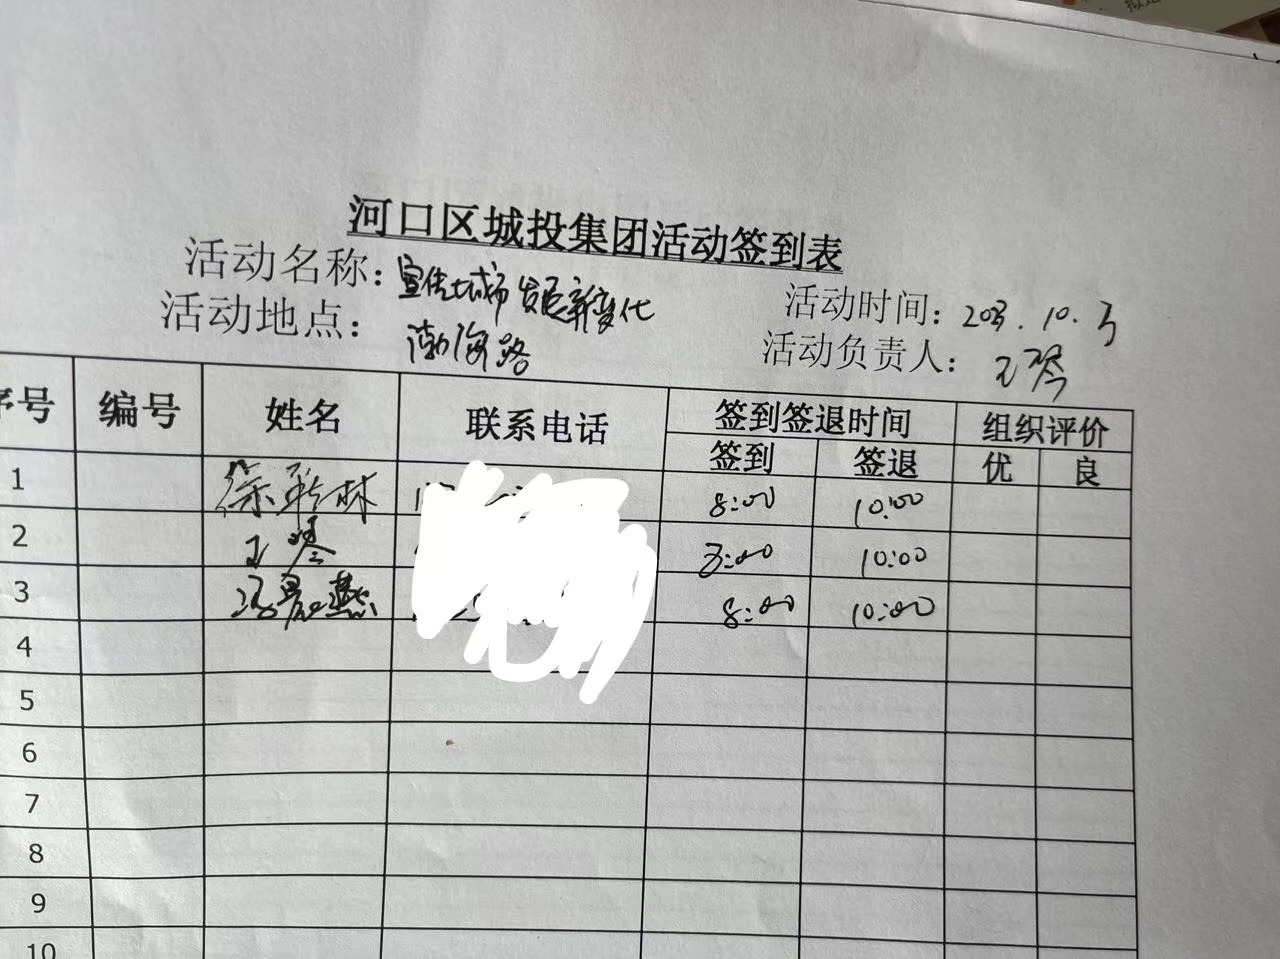 河口区城投集团活动签到表
活动名称：宣传城市发展新变化
活动时间：203.10.3
活动地点：渤海路
活动负责人：王琴
序号 编号 姓名 联系电话 签到签退时间 组织评价
签到 签退 优 良
1 徐彩林 8:00 10:00
2 王琴 8:00 10:00
3 燕 8:00 10:00
4
5
6
7
8
9
10